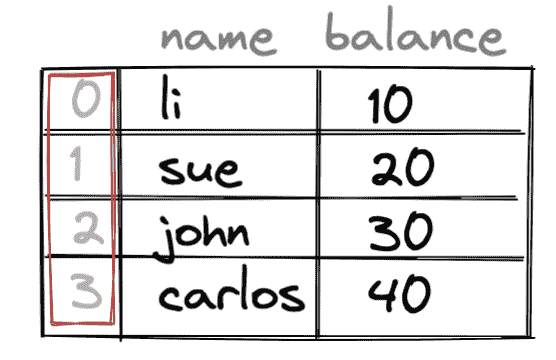 name balance
0 li 10
1 sue 20
2 john 30
3 carlos 40